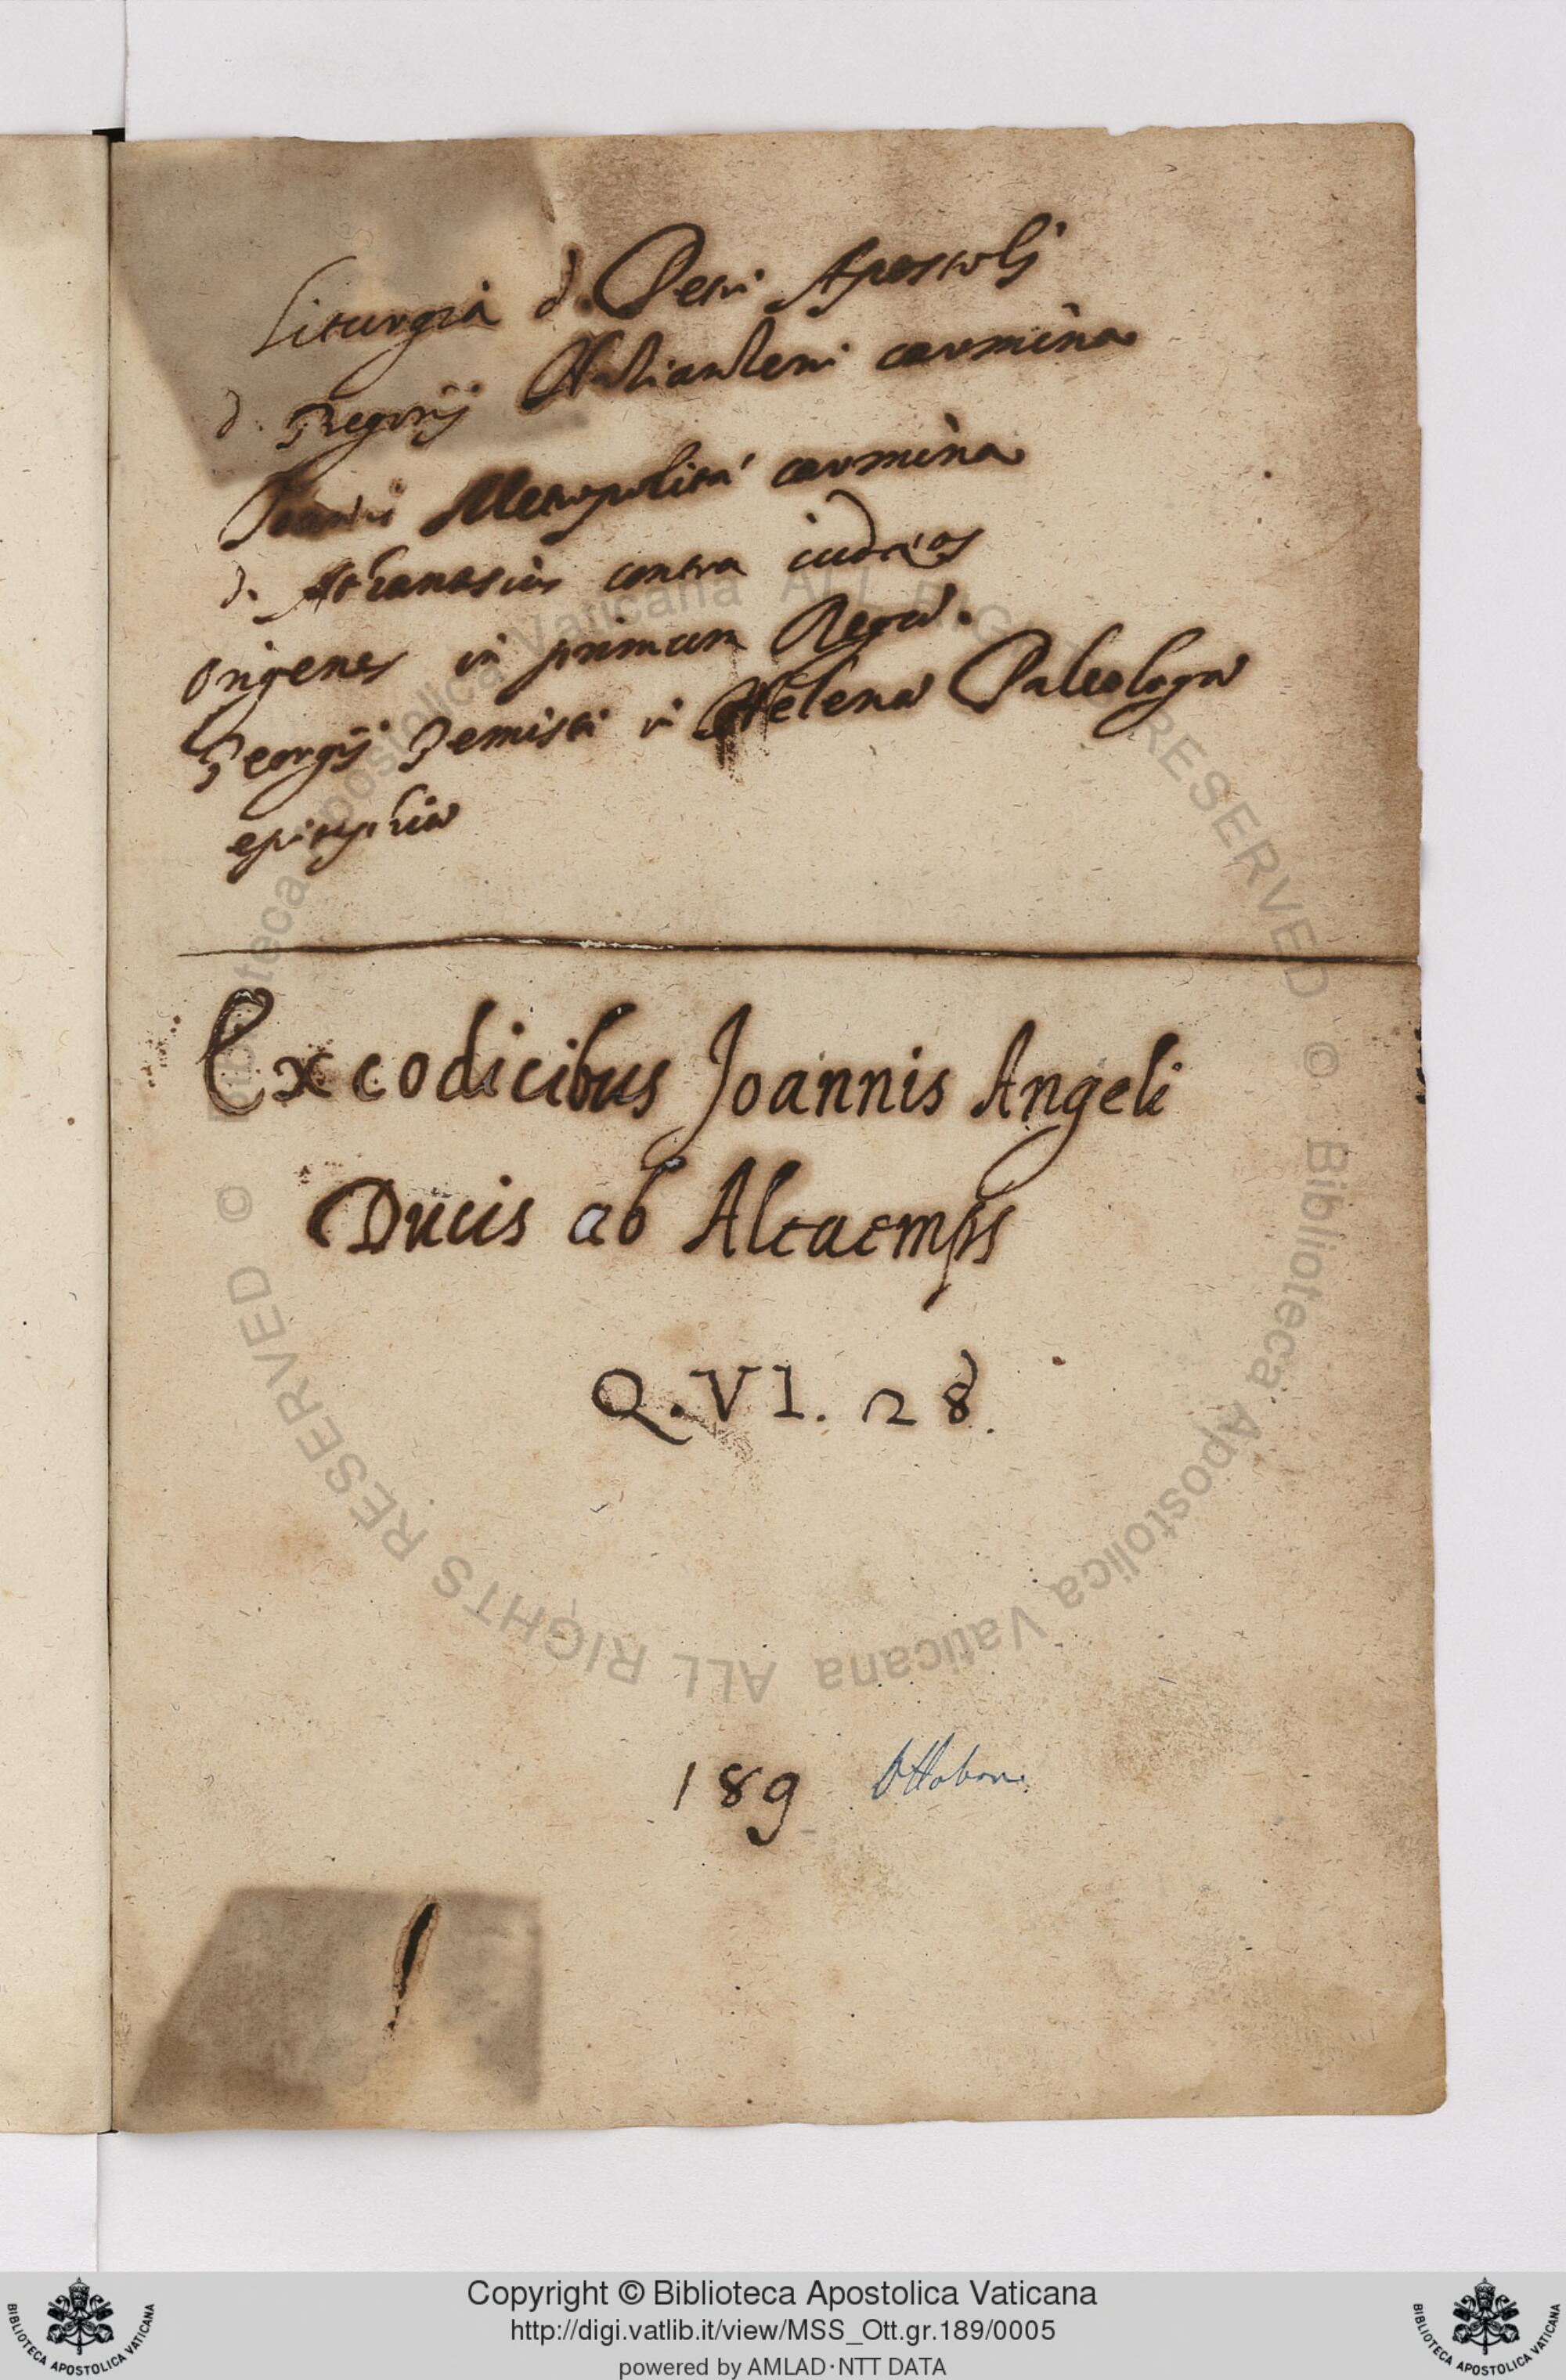 Liturgia d. Petri Apostoli
d. Gregorij carmina
Joannis Metropolita carmina
d. Athanasius contra iudæos
Origenes in primum Regū.
Georgij Gemisti in Helenæ Paleologæ
epitaphia
Ex codicibus Joannis Angeli
Ducis ab Altaemps
Q. VI. 28.
189 Ottobon.
© Biblioteca Apostolica Vaticana ALL RIGHTS RESERVED © Biblioteca Apostolica Vaticana ALL RIGHTS RESERVED
BIBLIOTECA APOSTOLICA VATICANA
Copyright © Biblioteca Apostolica Vaticana
http://digi.vatlib.it/view/MSS_Ott.gr.189/0005
powered by AMLAD·NTT DATA
BIBLIOTECA APOSTOLICA VATICANA